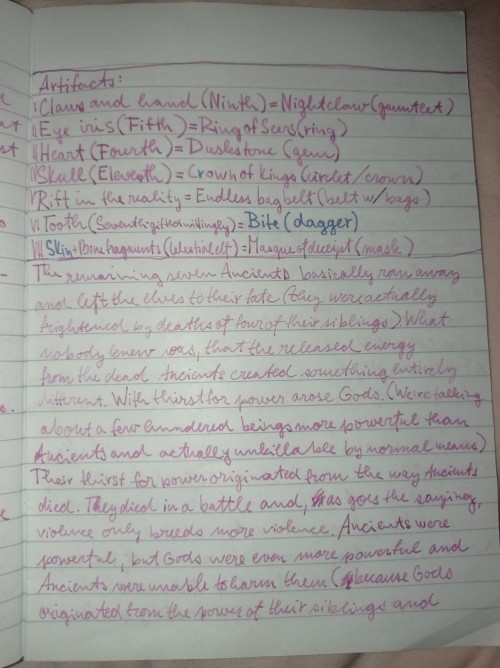 Artifacts:
I Claws and hand (Ninth) = Nightclaw (gauntlet)
II Eye iris (Fifth) = Ring of Seers (ring)
III Heart (Fourth) = Duskstone (gem)
IV Skull (Eleventh) = Crown of Kings (circlet/crown)
V Rift in the reality = Endless bagbelt (belt w/ bags)
VI Tooth (Seventh-gifted willingly) = Bite (dagger)
VII Skin + Bone fragments (Celestial elf) = Masque of deceipt (mask)
The remaining seven Ancients basically ran away
and left the elves to their fate (they were actually
frightened by deaths of four of their siblings). What
nobody knew was, that the released energy
from the dead Ancients created something entirely
different. With thirst for power arose Gods. (We're talking
about a few hundered beings more powerful than
Ancients and actually unkillable by normal means)
Their thirst for power originated from the way Ancients
died. They died in a battle and, as goes the saying,
violence only breeds more violence. Ancients were
powerful, but Gods were even more powerful and
Ancients were unable to harm them (because Gods
originated from the power of their siblings and